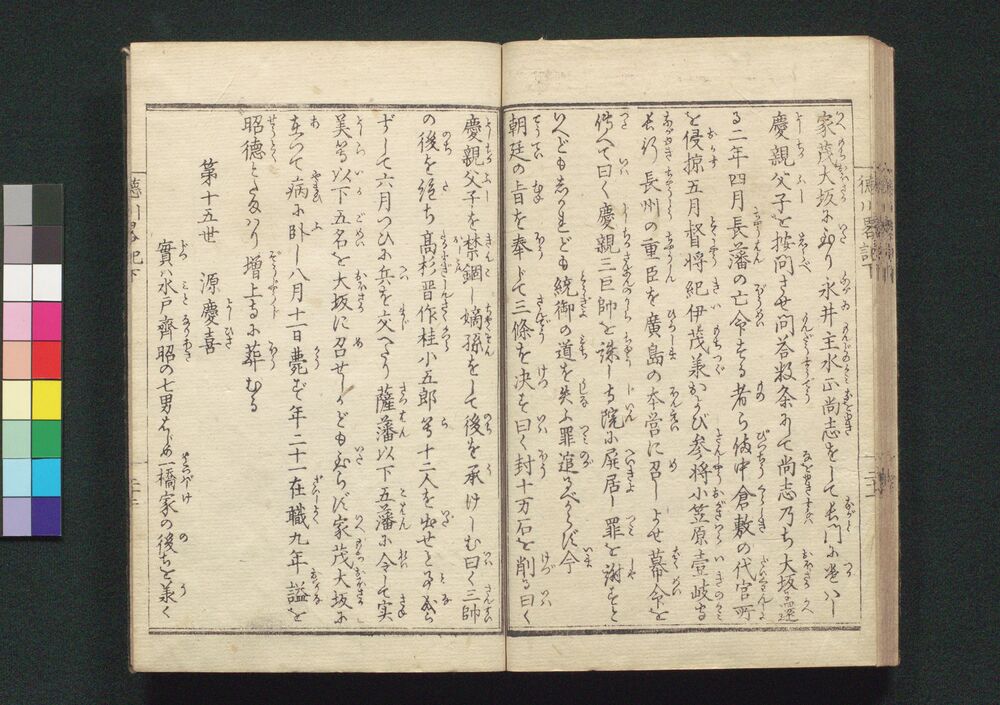 家茂大坂に至り永井主水正尚志をして長門に遣はし
慶親父子を按問させ問答数条にて尚志乃ち大坂に還
る二年四月長藩の亡命する者ら備中倉敷の代官所
を侵掠五月督将紀伊茂承および参将小笠原壱岐守
長行長州の重臣を廣島の本営に召しよせ幕命を
傳へて曰く慶親三巨帥を誅し寺院に屏居し罪を謝すと
いへども志かれども統御の道を失ふ罪逭るべからず今
朝廷の旨を奉じて三條を決す曰く封十万石を削る曰く
慶親父子を禁錮し嫡孫をして後を承けしむ曰く三帥
の後を絶ち髙杉晋作桂小五郎等十二人を出せと
ずして六月つひに兵を交へたり薩藩以下五藩に令して実
美等以下五名を大坂に召せしかども至らず家茂大坂に
在つて病に卧し八月十一日薨ず年二十一在職九年謚を
昭徳とたまはり増上寺に葬むる
第十五世 源慶喜
實ハ水戸齊昭の七男はじめ一橋家の後ちを承く
徳川畧記下